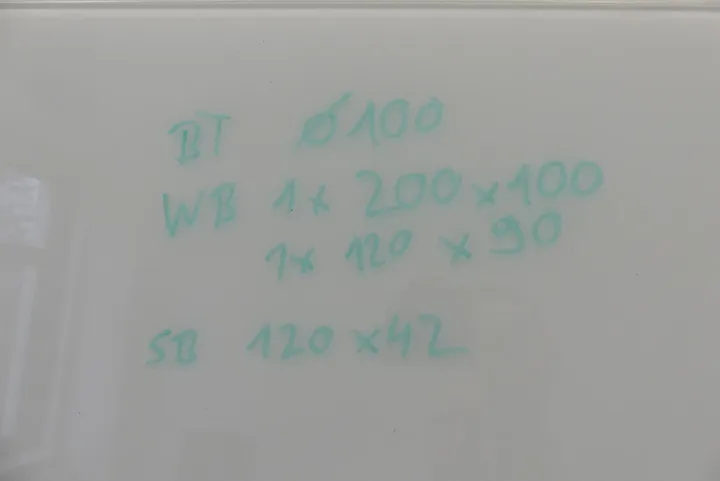 BT Ø100
WB 1x 200x100
1x 120 x 90
SB 120x42